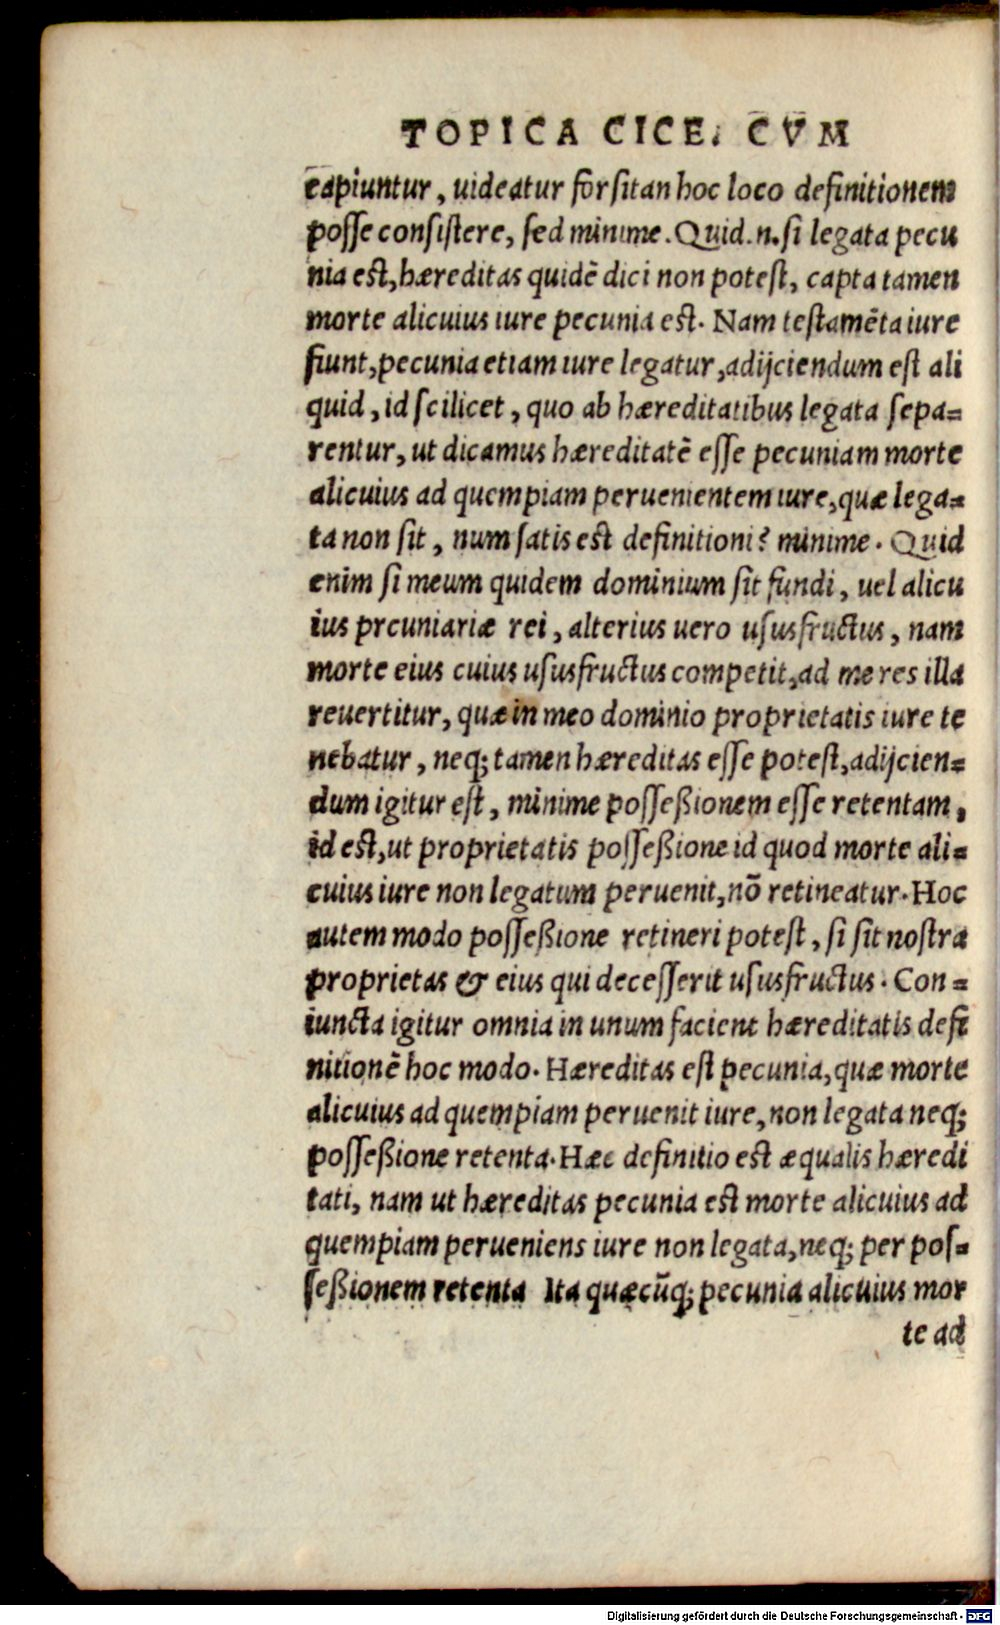 TOPICA CICE. CVM
capiuntur, uideatur forsitan hoc loco definitionem
posse consistere, sed minime. Quid.n.si legata pecu
nia est, hæreditas quidē dici non potest, capta tamen
morte alicuius iure pecunia est. Nam testamēta iure
fiunt, pecunia etiam iure legatur, adijciendum est ali
quid, id scilicet, quo ab hæreditatibus legata sepa=
rentur, ut dicamus hæreditatē esse pecuniam morte
alicuius ad quempiam peruenientem iure, quæ lega=
ta non sit, num satis est definitioni? minime. Quid
enim si meum quidem dominium sit fundi, uel alicu
ius prcuniariæ rei, alterius uero ususfructus, nam
morte eius cuius ususfructus competit, ad me res illa
reuertitur, quæ in meo dominio proprietatis iure te
nebatur, neq; tamen hæreditas esse potest, adijcien=
dum igitur est, minime posseßionem esse retentam,
id est, ut proprietatis posseßione id quod morte ali=
cuius iure non legatum peruenit, nō retineatur. Hoc
autem modo posseßione retineri potest, si sit nostra
proprietas & eius qui decesserit ususfructus. Con=
iuncta igitur omnia in unum facient hæreditatis defi
nitionē hoc modo. Hæreditas est pecunia, quæ morte
alicuius ad quempiam peruenit iure, non legata neq;
posseßione retenta. Hæc definitio est æqualis hæredi
tati, nam ut hæreditas pecunia est morte alicuius ad
quempiam perueniens iure non legata, neq; per pos=
seßionem retenta Ita quæcūq; pecunia alicuius mor
te ad
Digitalisierung gefördert durch die Deutsche Forschungsgemeinschaft - DFG